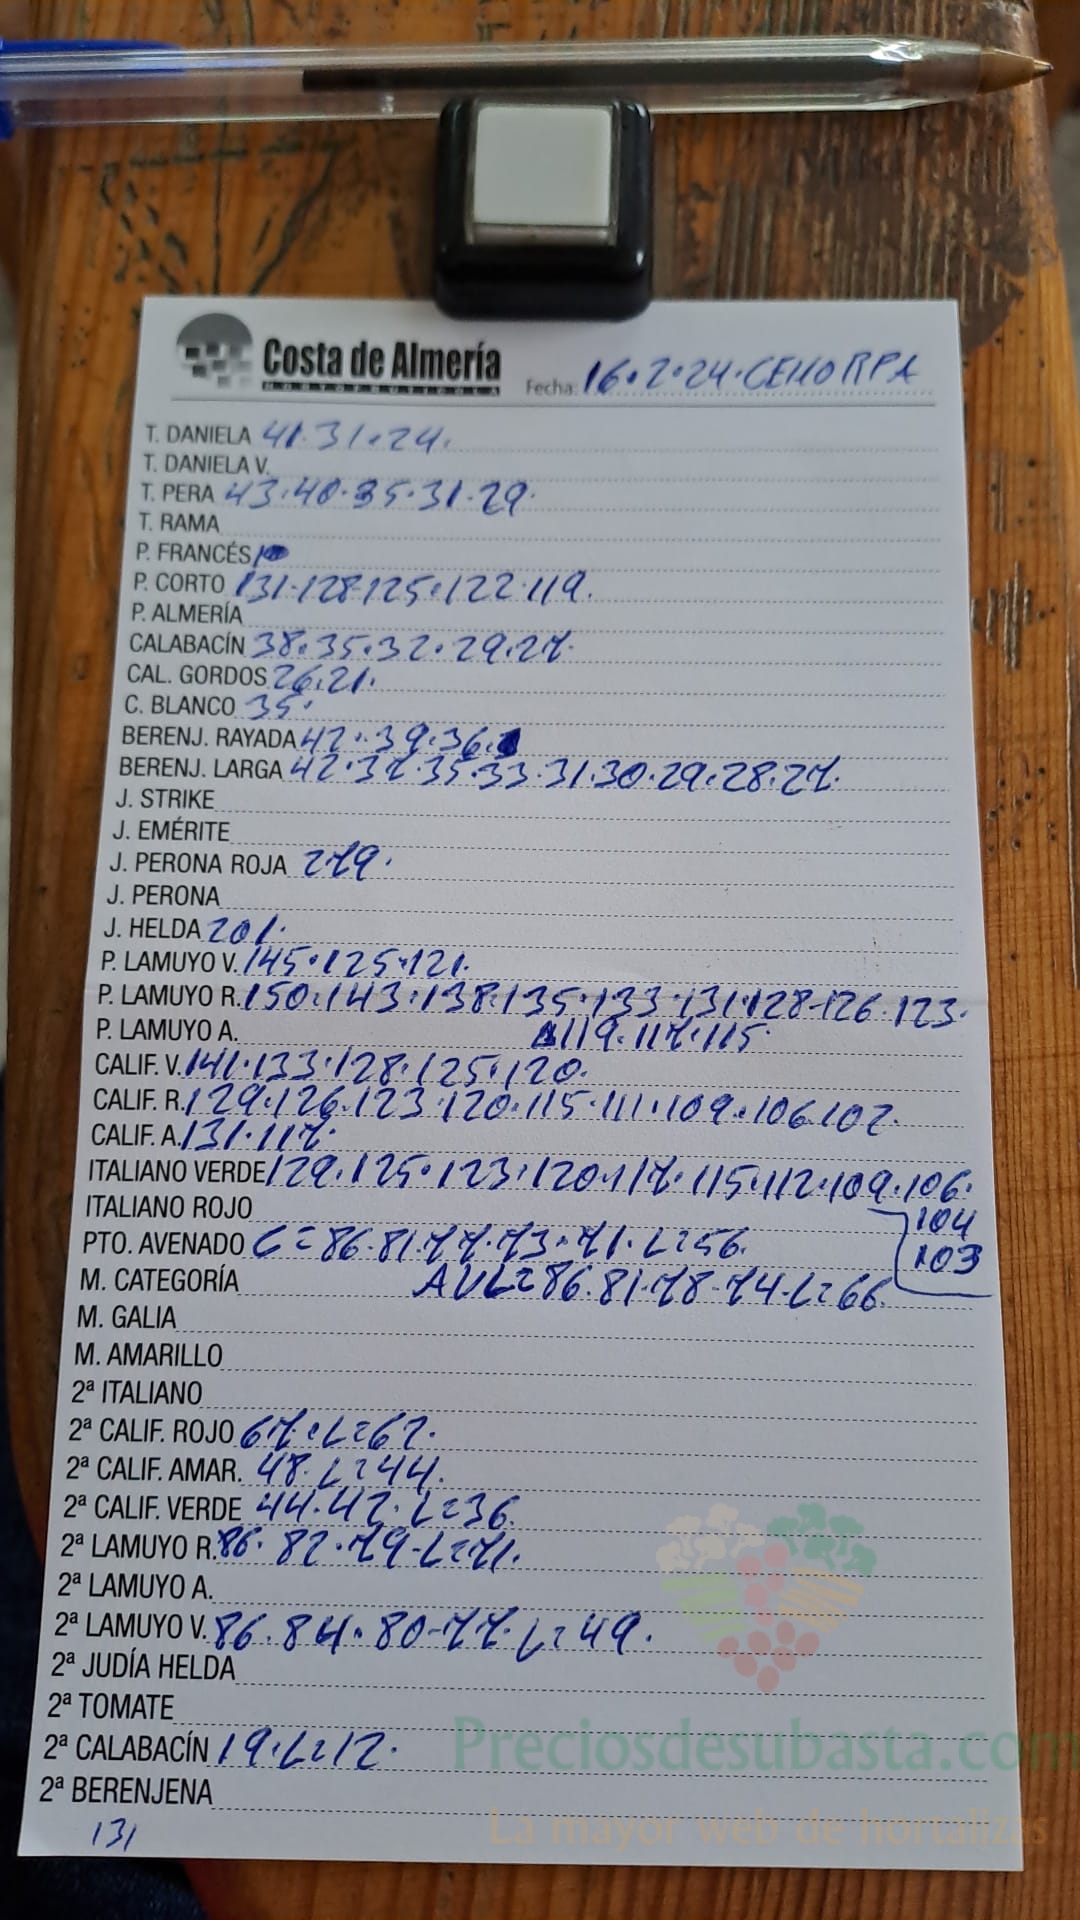 Costa de Almería
HORTOFRUTICOLA
Fecha: 16.2.24. CEHORPA
T. DANIELA 41.31.24.
T. DANIELA V.
T. PERA 43.40.35.31.29.
T. RAMA
P. FRANCÉS
P. CORTO 131.128.125.122.119.
P. ALMERÍA
CALABACÍN 38.35.32.29.27.
CAL. GORDOS 26.21.
C. BLANCO 35.
BERENJ. RAYADA 42.39.36.
BERENJ. LARGA 42.37.35.33.31.30.29.28.27.
J. STRIKE
J. EMÉRITE
J. PERONA ROJA 279.
J. PERONA
J. HELDA 201.
P. LAMUYO V. 145.125.121.
P. LAMUYO R. 150.143.138.135.133.131.128-126.123.
P. LAMUYO A. 119.117.115.
CALIF. V. 141.133.128.125.120.
CALIF. R. 129.126.123.120.115.111.109.106.102.
CALIF. A. 131.117.
ITALIANO VERDE 129.125.123.120.117.115.112.109.106.
ITALIANO ROJO 104
PTO. AVENADO C=86.81.77.73.71.L=56. 103
M. CATEGORÍA AVL=86.81.78-74-L=66.
M. GALIA
M. AMARILLO
2ª ITALIANO
2ª CALIF. ROJO 67.L=62.
2ª CALIF. AMAR. 48.L=44.
2ª CALIF. VERDE 44.42.L=36.
2ª LAMUYO R. 86.82.79-L=71.
2ª LAMUYO A.
2ª LAMUYO V. 86.84.80-77.L=49.
2ª JUDÍA HELDA
2ª TOMATE
2ª CALABACÍN 19.L=12.
2ª BERENJENA
131
Preciosdesubasta.com
La mayor web de hortalizas